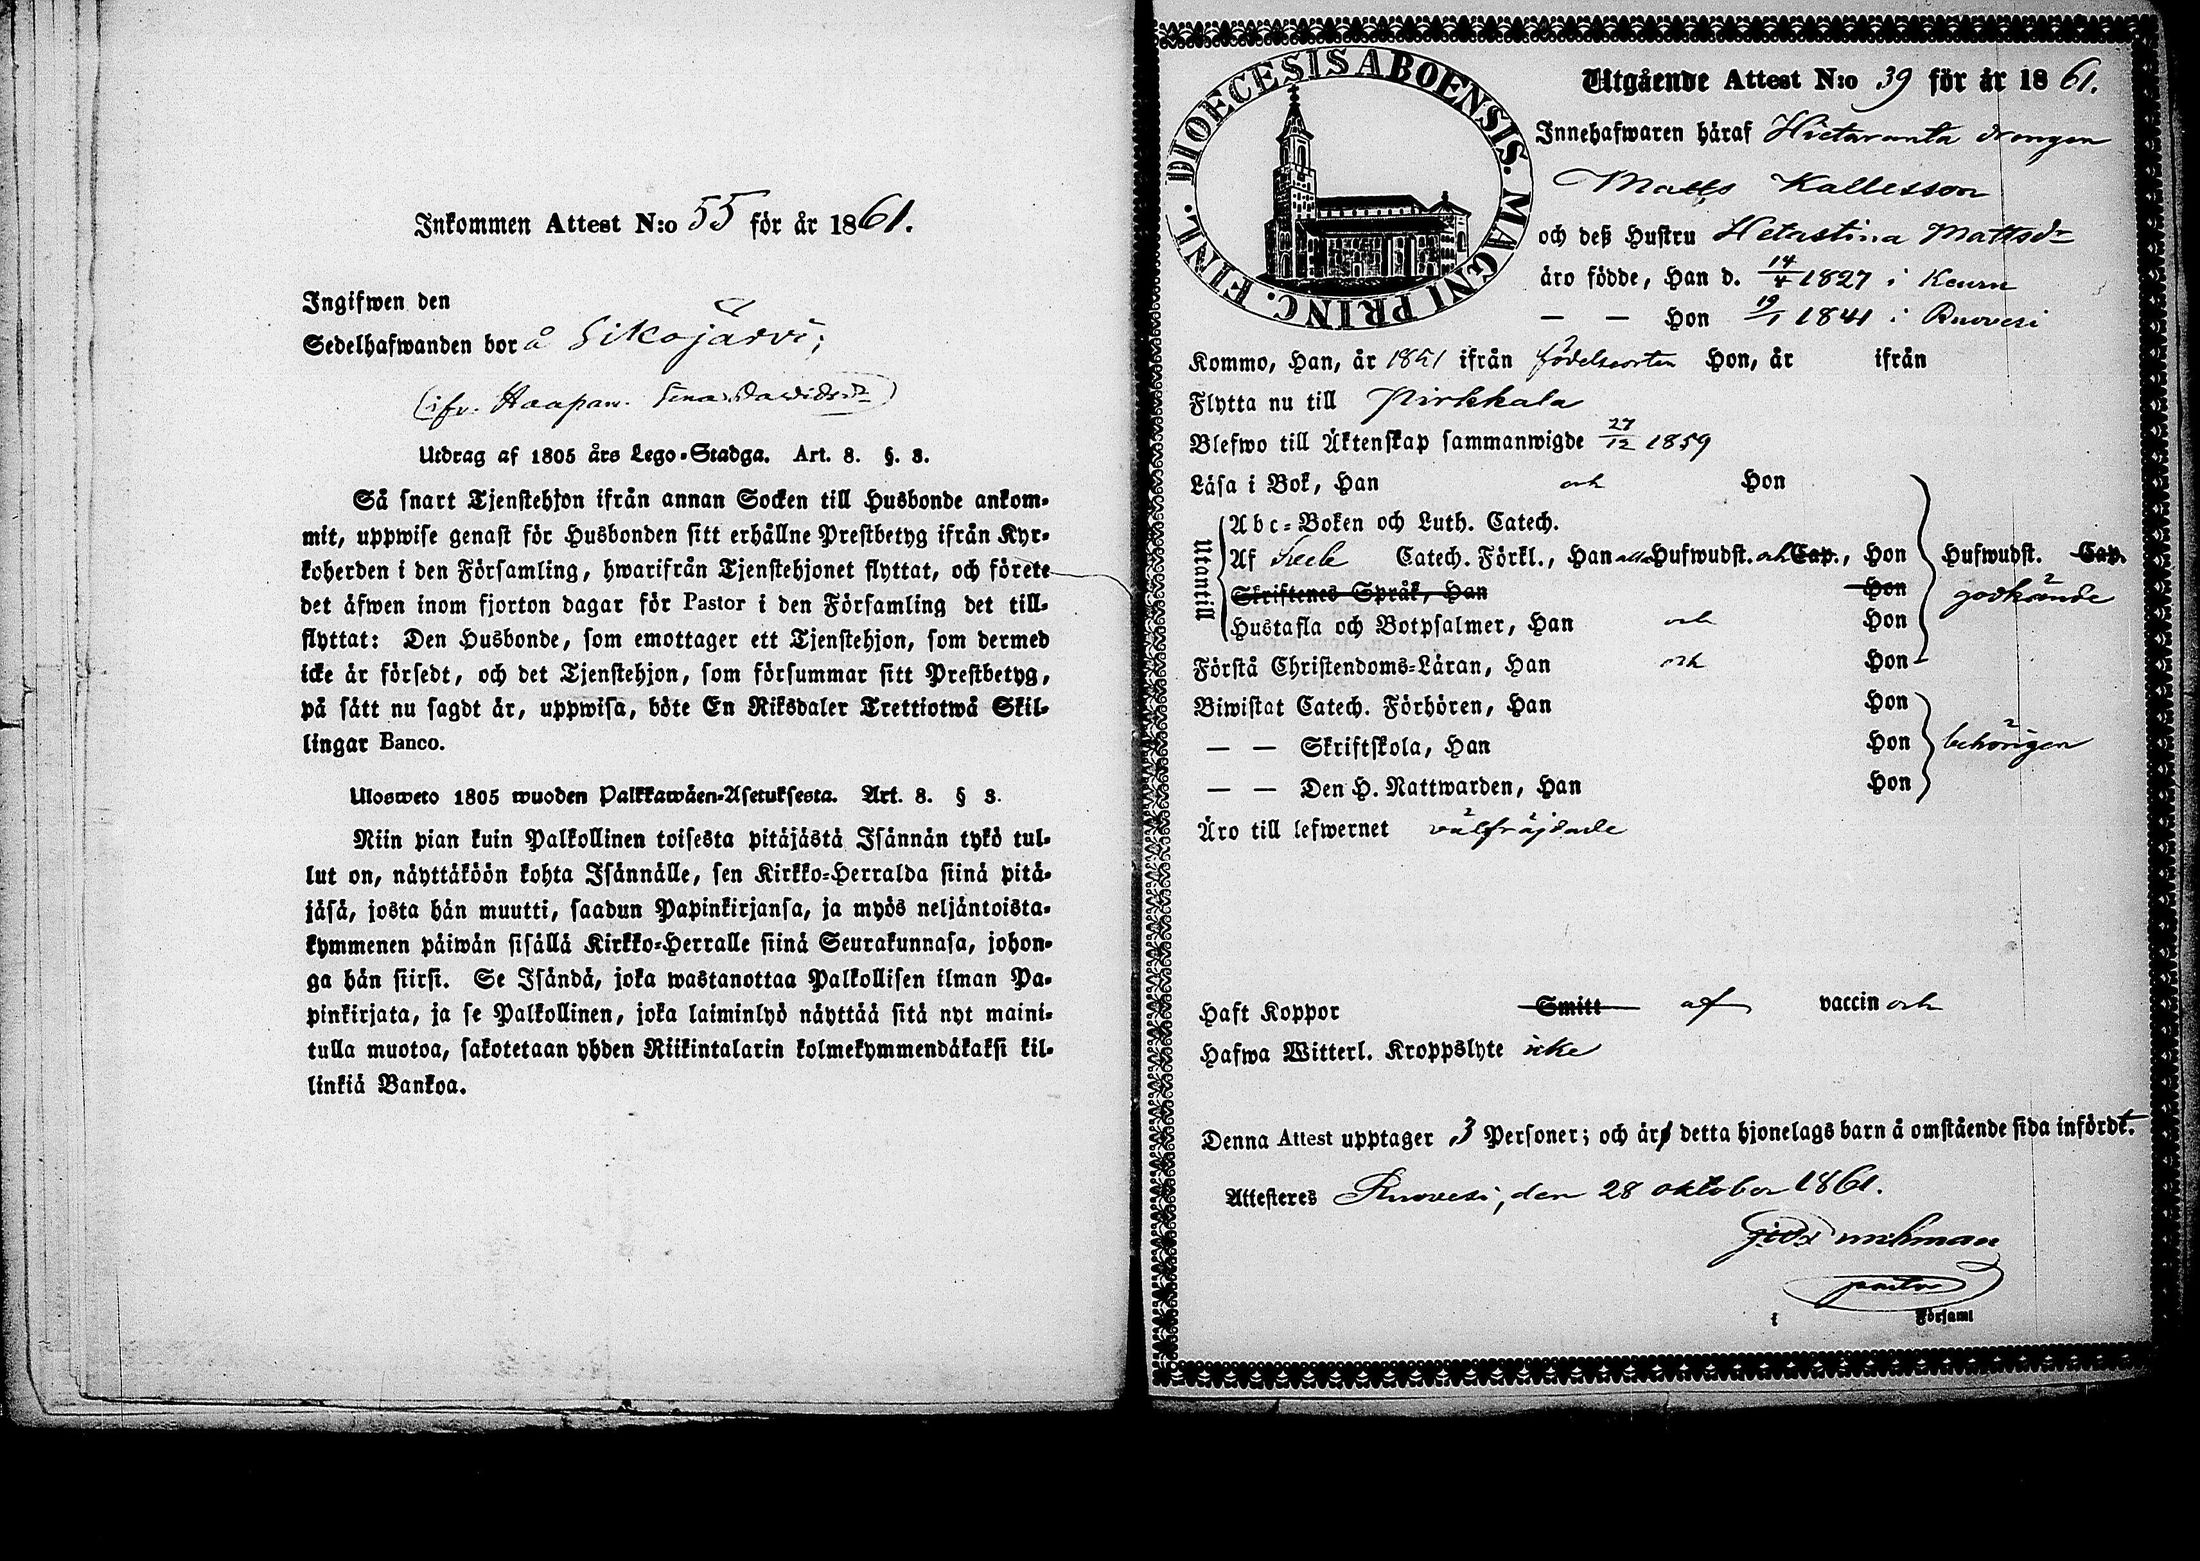 Inkommen Attest N:o 55 för år 1861.
Ingifwen den
Sedelhafwanden bor å Sikojärvi;
(ifr. Haapan. Lena Davidsdr)
Utdrag af 1805 års Lego-Stadga. Art. 8. §. 8.
Så snart Tjenstehjon ifrån annan Socken till Husbonde ankom-
mit, uppwise genast för Husbonden sitt erhållne Prestbetyg ifrån Kyr-
koherden i den Församling, hwarifrån Tjenstehjonet flyttat, och förete
det äfwen inom fjorton dagar för Pastor i den Församling det till-
flyttat: Den Husbonde, som emottager ett Tjenstehjon, som dermed
icke är försedt, och det Tjenstehjon, som försummar sitt Prestbetyg,
på sätt nu sagdt är, uppwisa, böte En Riksdaler Trettiotwå Skil-
lingar Banco.
Ulosweto 1805 wuoden Palkkawäen-Asetuksesta. Art. 8. § 8.
Niin pian kuin Palkollinen toisesta pitäjästä Isännän tykö tul-
lut on, näyttäköön kohta Isännälle, sen Kirkko-Herralda siinä pitä-
jäsä, josta hän muutti, saadun Papinkirjansa, ja myös neljäntoista-
kymmenen päiwän sisällä Kirkko-Herralle siinä Seurakunnasa, johon-
ga hän siirsi. Se Isändä, joka wastanottaa Palkollisen ilman Pa-
pinkirjata, ja se Palkollinen, joka laiminlyö näyttää sitä nyt maini-
tulla muotoa, sakotetaan yhden Riikintalarin kolmekymmendäkaksi kil-
linkiä Bankoa.
DIOECESIS ABOENSIS. MAGNI PRINC. FINL.
Utgående Attest N:o 39 för år 1861.
Innehafwaren häraf Hietaranta drengen
Matts Kallesson
och deß Hustru Hetastina Mattsdr
äro födde, Han d. 14/4 1827 i Keuru
— — Hon 19/1 1841 i Ruovesi
Kommo, Han, år 1851 ifrån födelseorten Hon, år ifrån
Flytta nu till Pirkkala
Blefwo till Äktenskap sammanwigde 27/12 1859
Läsa i Bok, Han och Hon
Utantill
Abc-Boken och Luth. Catech.
Af Catech. Förkl., Han Hufwudst. och Cap., Hon Hufwudst. Cap.
Skriftenes Språk, Han Hon godkände
Hustafla och Botpsalmer, Han och Hon
Förstå Christendoms-Läran, Han och Hon
Biwistat Catech. Förhören, Han Hon
— — Skriftskola, Han Hon behörigen
— — Den H. Nattwarden, Han Hon
Äro till lefwernet välfräjdade
Haft Koppor Smitt af vaccin och
Hafwa Witterl. Kroppslyte icke
Denna Attest upptager 3 Personer; och är detta hjonelags barn å omstående sida infördt.
Attesteres Ruovesi, den 28 oktober 1861.
pastor
i Församl